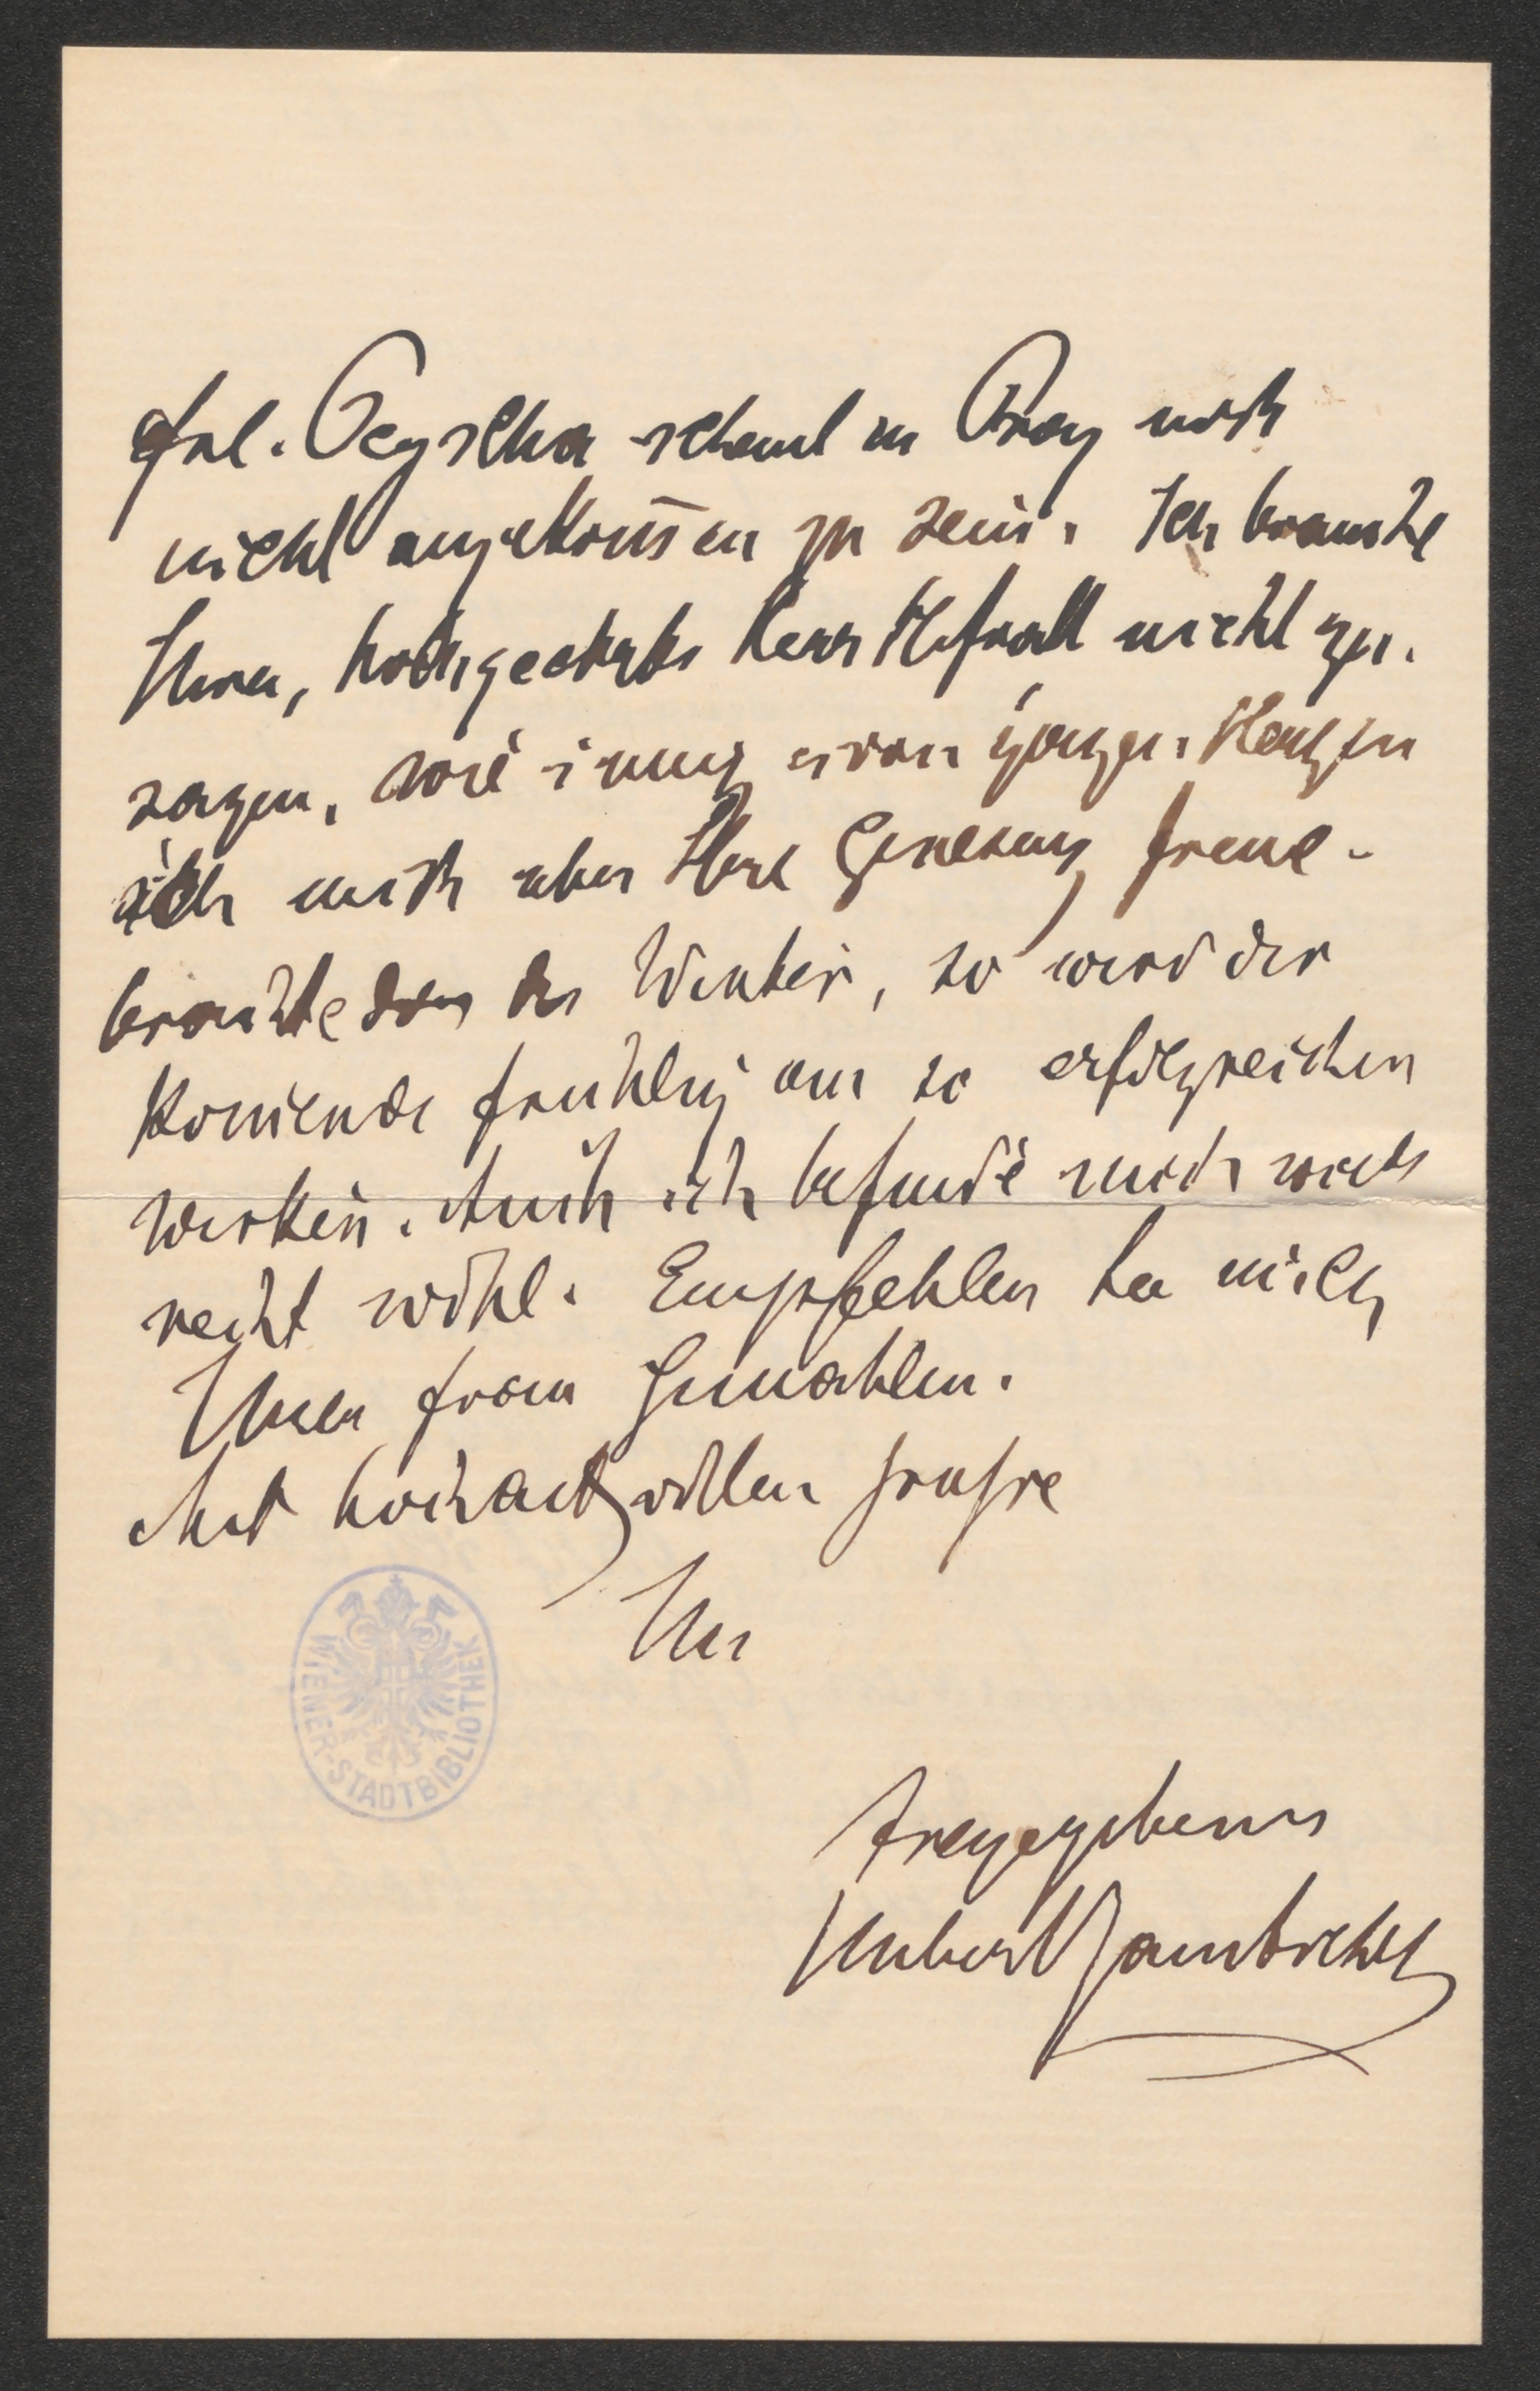 Frl. scheint in Prag noch
nicht angekom̅en zu sein. Ich brauche
Ihnen, hochgeehrter Herr Hofrath nicht zu
sagen, wie innig u von ganzem Herzen
ich mich über Ihre Genesung freue.
brachte den der Winter, so wird der
kom̅ende Frühling um so erfolgreicher
wirken. Auch ich befinde mich
recht wohl. Empfehlen Sie mich
Ihrer Frau Gemahlin.
Mit hochachtgsvollem Grusse
Ihr
treuergebener
WIENER-STADTBIBLIOTHEK